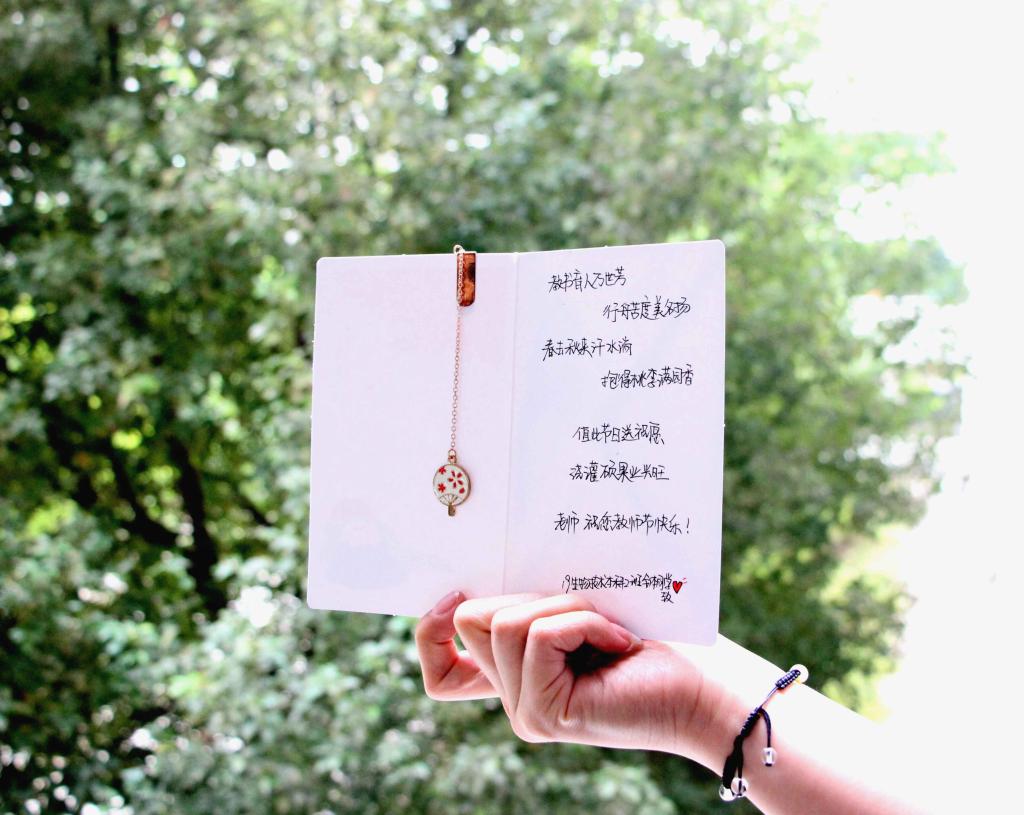 教书育人万世芳
行舟苦度美名扬
春去秋来汗水淌
抱得桃李满园香
值此节日送祝愿
浇灌硕果业兴旺
老师 祝您教师节快乐！
19生物技术本科2班全体同学
致